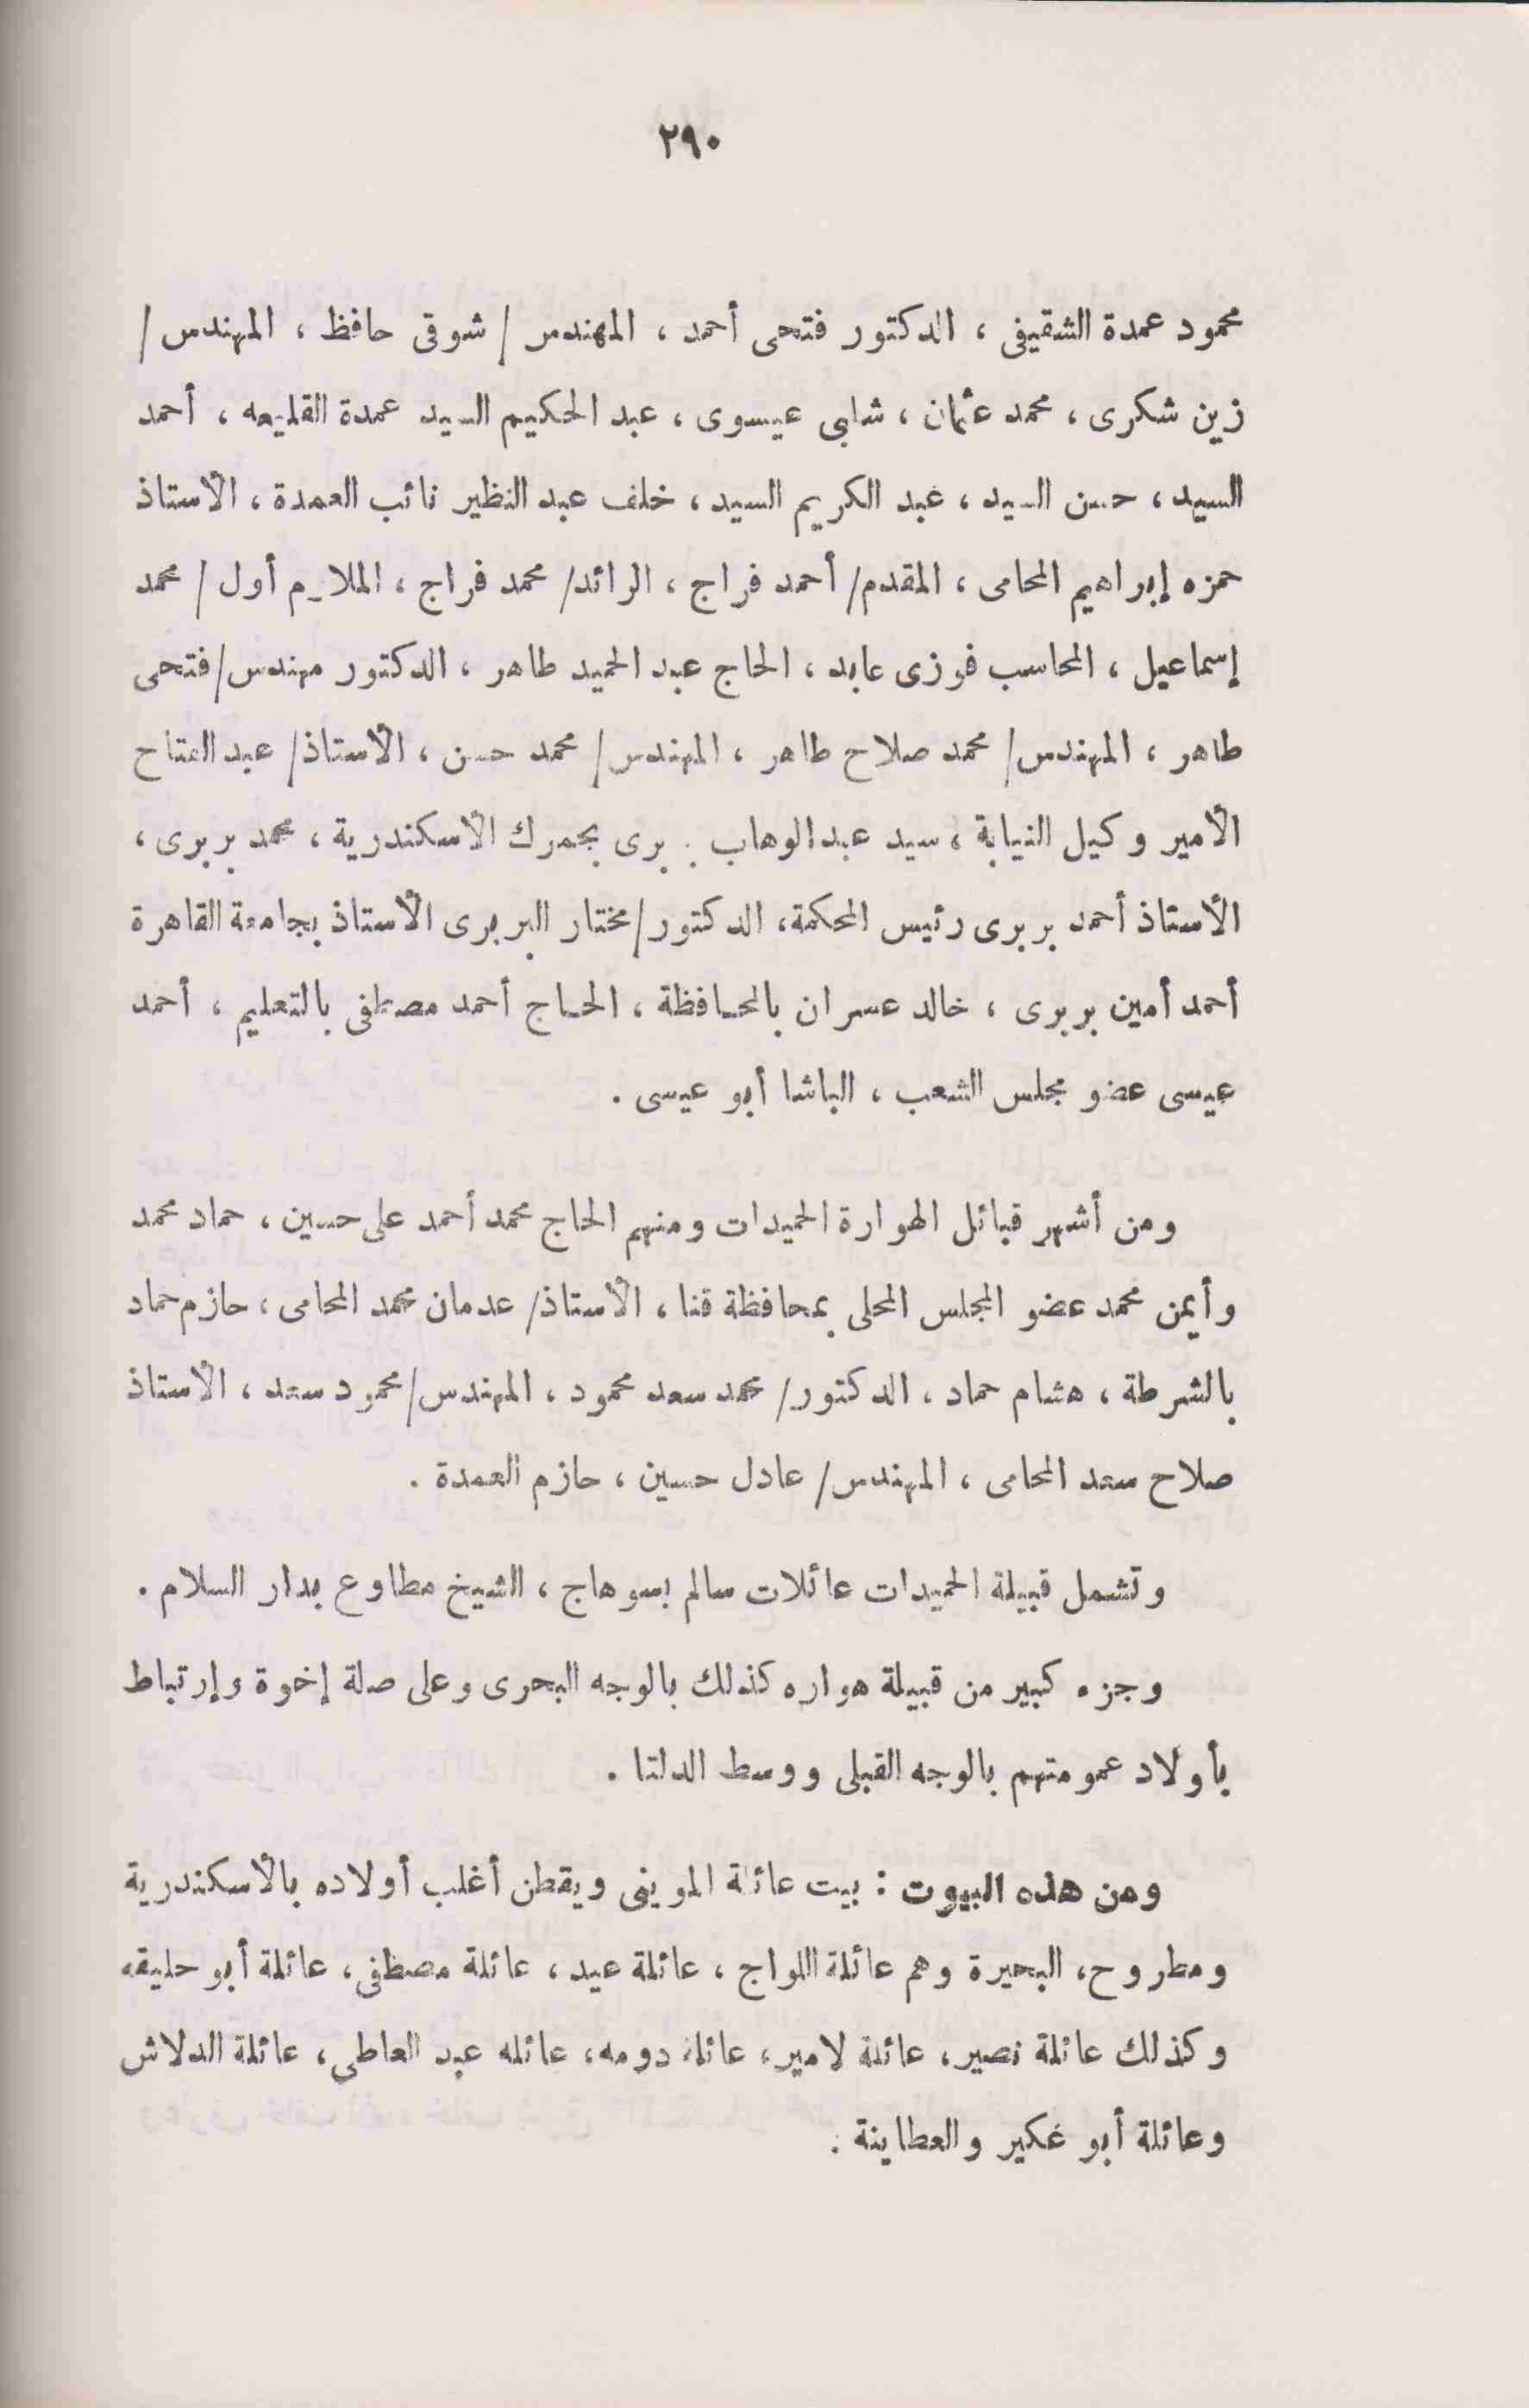 ٢٩٠
محمود عمدة الشقيفى ، الدكتور فتحى أحمد ، المهندس / شوقى حافظ ، المهندس /
زين شكرى ، محمد عثمان ، شابى عيسوى ، عبد الحكيم السيد عمدة القليعه ، أحمد
السيد ، حسن السيد ، عبد الكريم السيد ، خلف عبد النظير نائب العمدة ، الأستاذ
حمزه إبراهيم المحامى ، المقدم/ أحمد فراج ، الرائد/ محمد فراج ، الملازم أول / محمد
إسماعيل ، المحاسب فوزى عابد ، الحاج عبد الحميد طاهر ، الدكتور مهندس/فتحى
طاهر ، المهندس/ محمد صلاح طاهر ، المهندس/ محمد حسن ، الأستاذ/ عبد الفتاح
الأمير وكيل النيابة ، سيد عبد الوهاب بربرى بجمرك الاسكندرية ، محمد بربرى ،
الأستاذ أحمد بربرى رئيس المحكمة ، الدكتور/مختار البربرى الأستاذ بجامعة القاهرة
أحمد أمين بربرى ، خالد عسران بالمحافظة ، الحاج أحمد مصطفى بالتعليم ، أحمد
عيسى عضو مجلس الشعب ، الباشا أبو عيسى .
ومن أشهر قبائل الهوارة الحميدات ومنهم الحاج محمد أحمد على حسين ، حماد محمد
وأيمن محمد عضو المجلس المحلى بمحافظة قنا ، الأستاذ/ عدمان محمد المحامى ، حازم حماد
بالشرطة ، هشام حماد ، الدكتور/ محمد سعد محمود ، المهندس/محمود سعد ، الأستاذ
صلاح سعد المحامى ، المهندس/ عادل حسين ، حازم العمدة .
وتشمل قبيلة الحميدات عائلات سالم بسوهاج ، الشيخ مطاوع بدار السلام .
وجزء كبير من قبيلة هواره كذلك بالوجه البحرى وعلى صلة إخوة وإرتباط
بأولاد عمومتهم بالوجه القبلى ووسط الدلتا .
ومن هذه البيوت : بيت عائلة الموينى ويقطن أغلب أولاده بالأسكندرية
ومطروح، البحيرة وهم عائلة اللواج ، عائلة عيد ، عائلة مصطفى ، عائلة أبو حليقه
وكذلك عائلة نصير، عائلة لامير، عائلة دومه، عائله عبد العاطى، عائلة الدلاش
وعائلة أبو عكير والعطاينة .